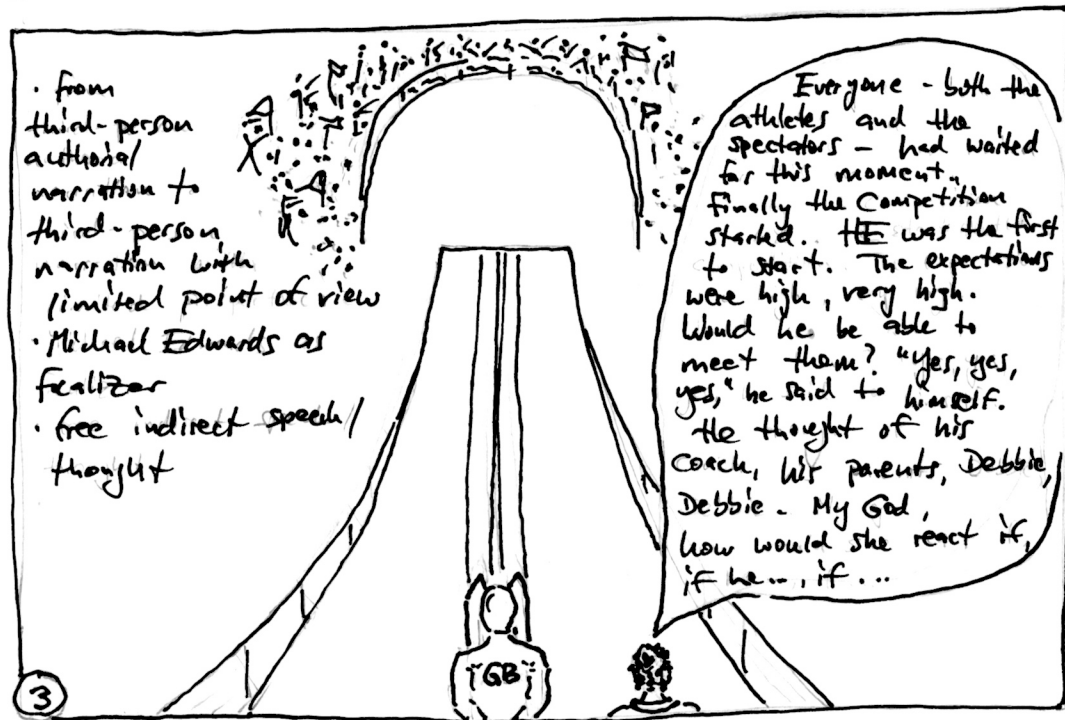 · from
third-person
authorial
narration to
third-person
narration with
limited point of view
· Michael Edwards as
focalizer
· free indirect speech/
thought
Everyone - both the
athletes and the
spectators - had waited
for this moment.
Finally the Competition
started. HE was the first
to start. The expectations
were high, very high.
Would he be able to
meet them? "Yes, yes,
yes," he said to himself.
He thought of his
Coach, his parents, Debbie,
Debbie. My God,
how would she react if,
if he..., if...
GB
3